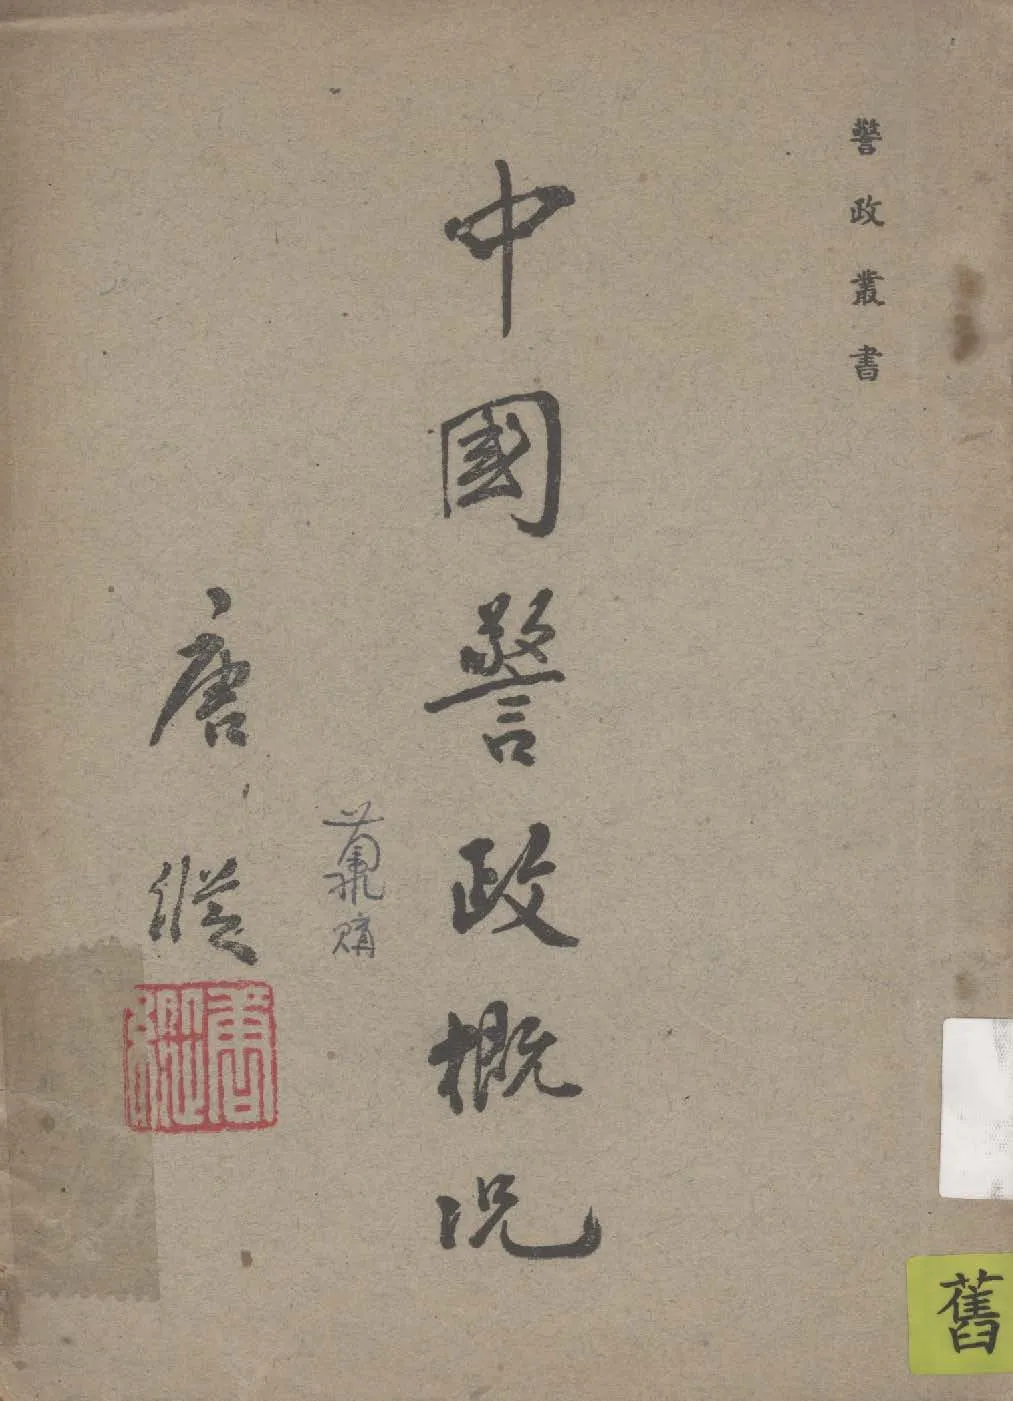 警政叢書
中國警政概況
唐縱
唐縱
舊